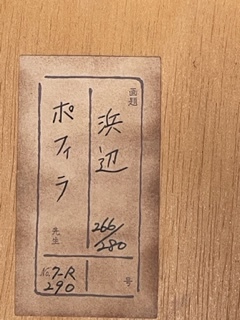 画題
浜辺
266/280
ポフィラ
先生
号
7-R
290